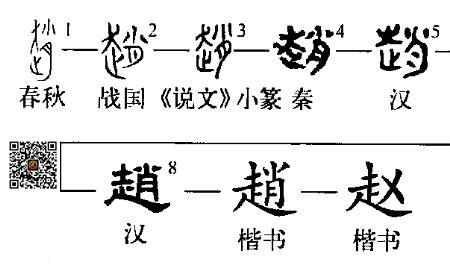 趙1 趙2 趙3 趙4 趙5
春秋 战国 《说文》小篆 秦 汉
趙8 趙 赵
汉 楷书 楷书